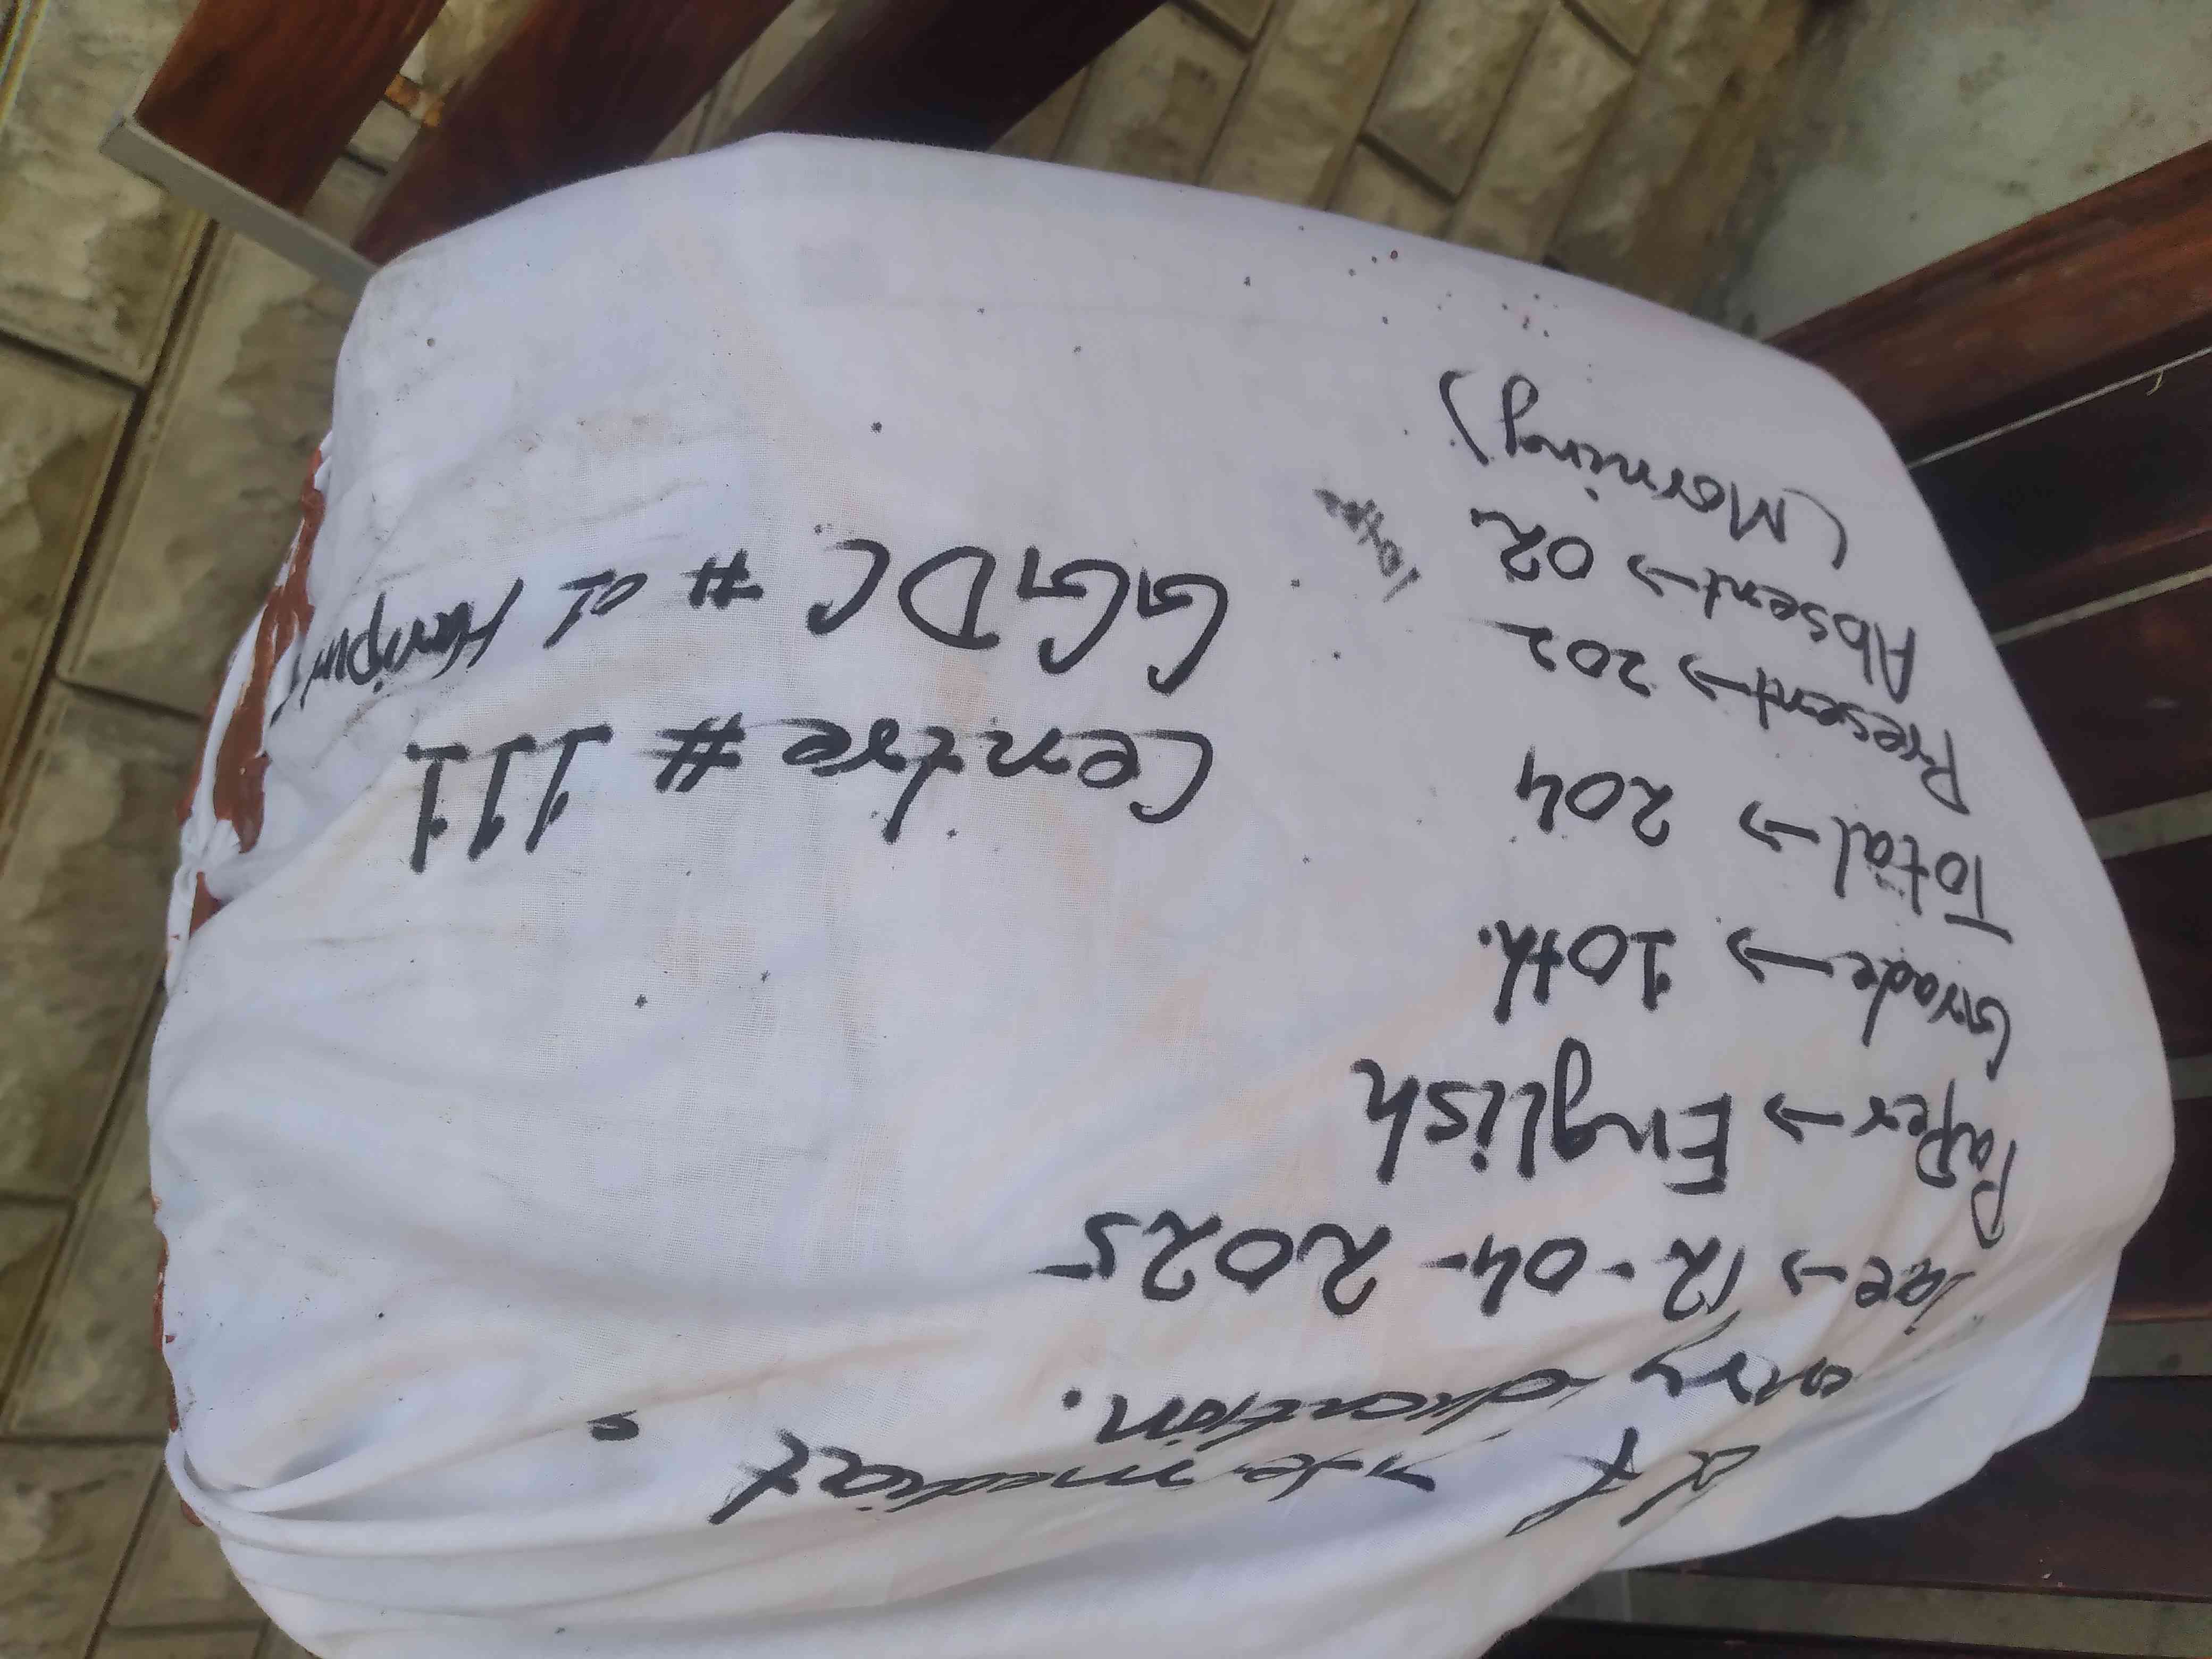 of termediat
ary ducation.
ice → 12-04-2025
Paper → English
Grade → 10th.
Total → 204
Present → 202
Absent → 02
(Morning)
Centre # 111
GGDC # 01 Haripur